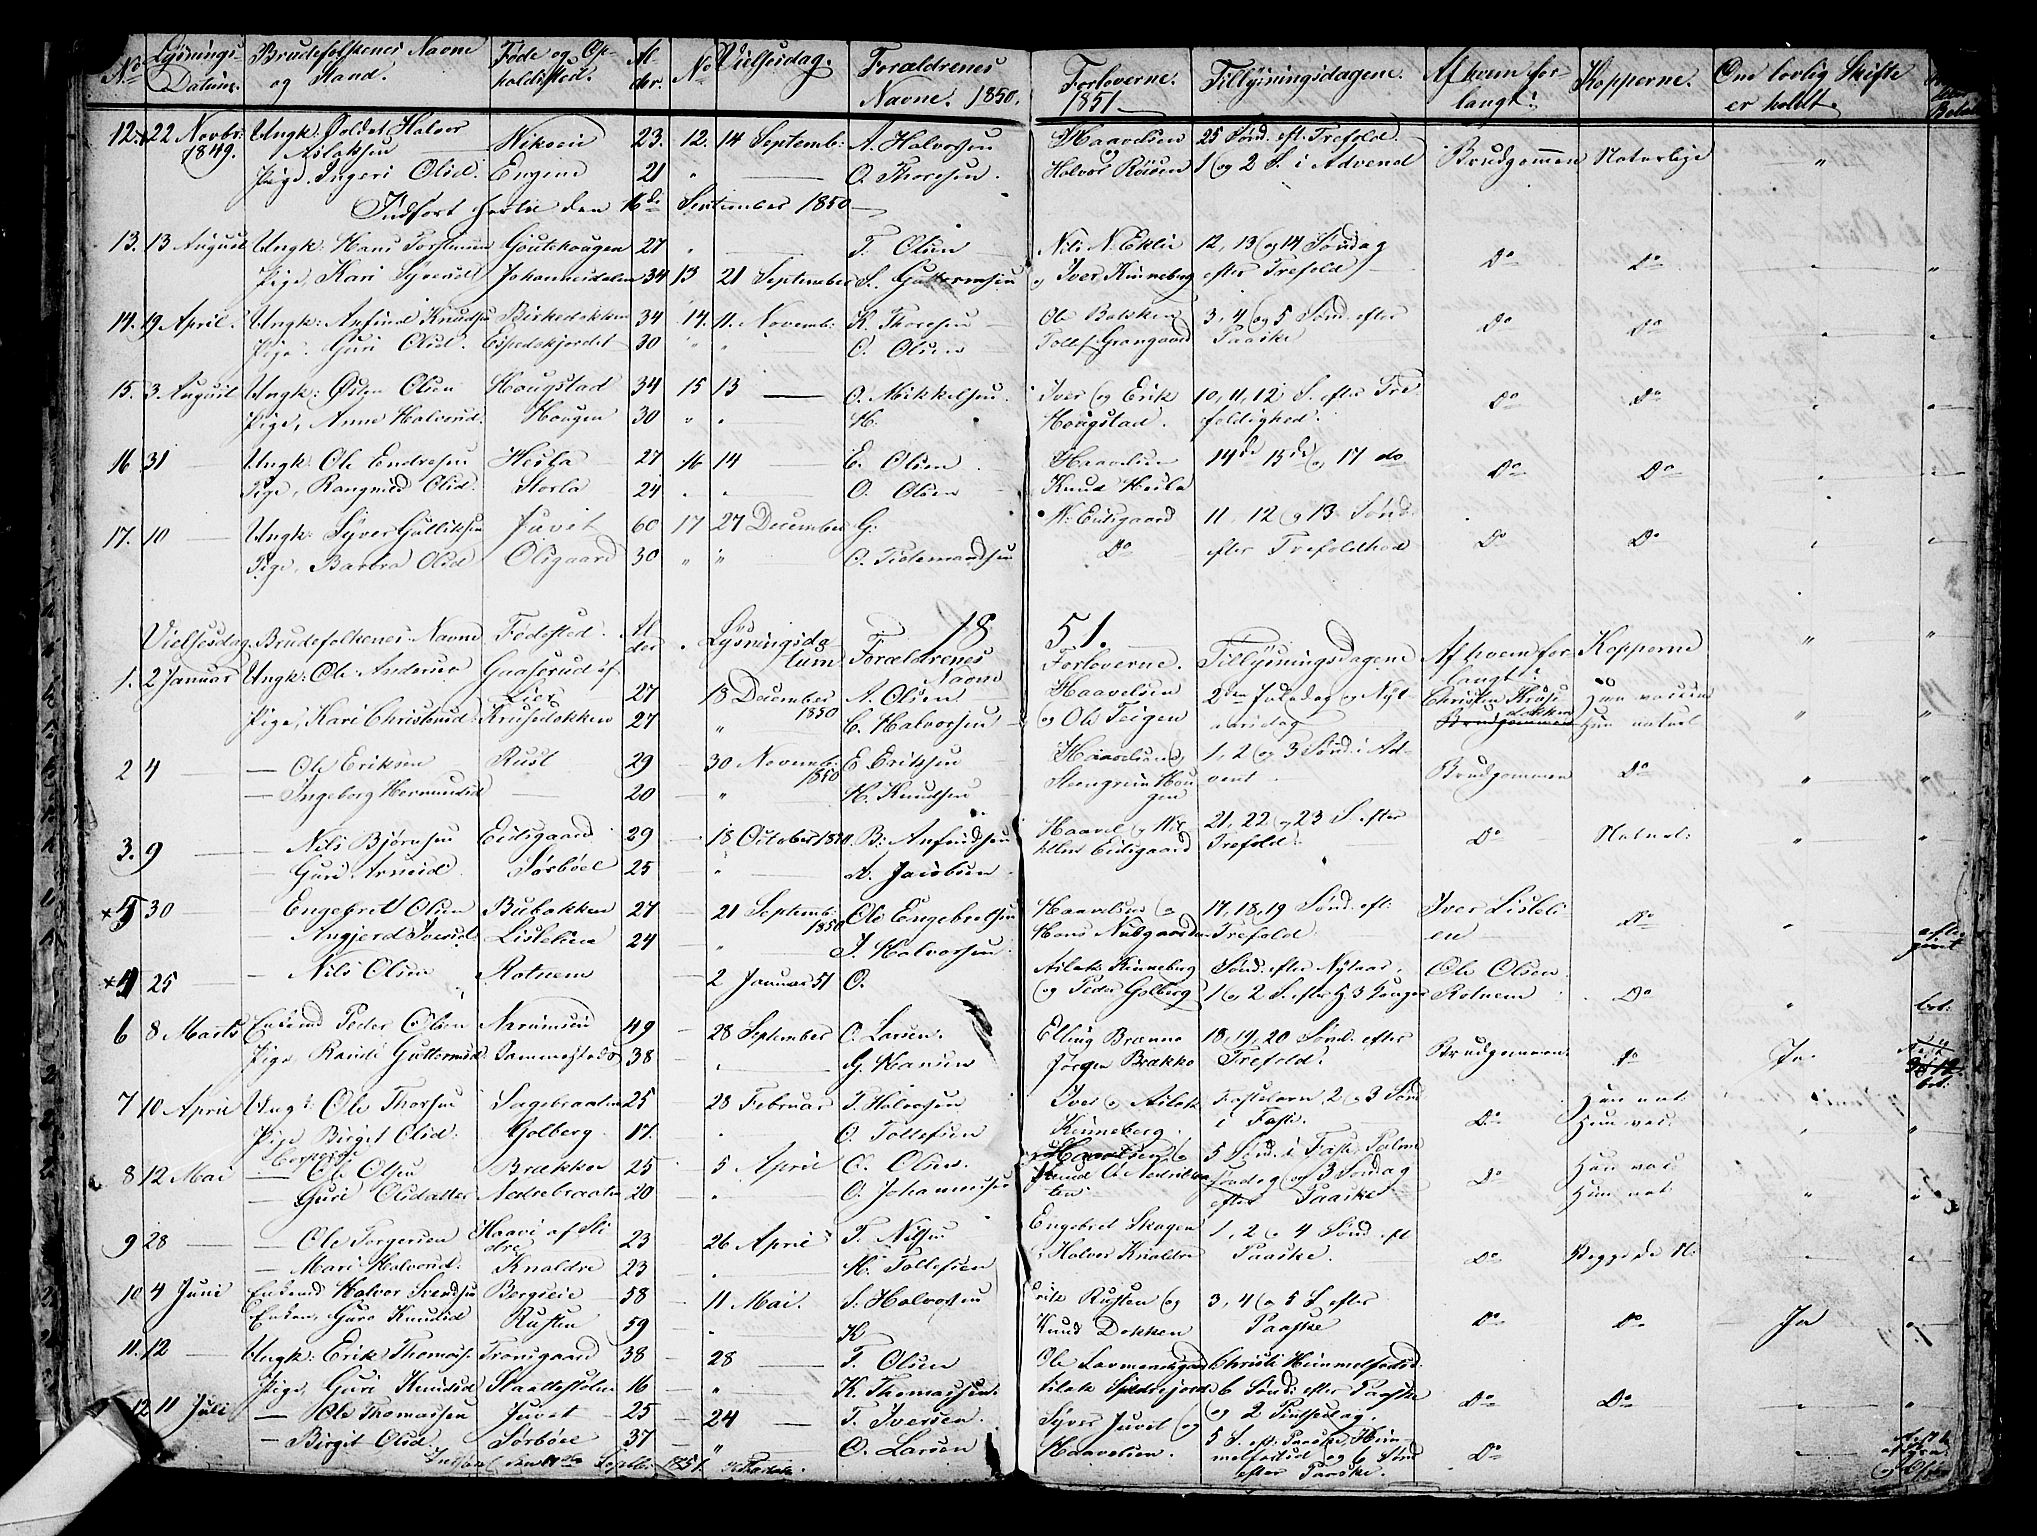 No Lysnings- Brudefolkenes Navne Føde og Op- Al- No Vielsesdag. Forældrenes Forloverne. Tillysningsdagene. Af hvem for- Kopperne. Om lovlig Skifte
Datum. og Stand. holdssted. der. Navne. 1850. 1851. langt? er holdt.
12. 22 Novbr: Ungk: Halvor Nikseie 23. 12. 14 Septemb: A. Halvorsen Haavelsen 25 Sønd. eft. Trefold.
1849. Aslaksen og
Pige. Ingeri Olsd. Engene 21 " — O. Thoresen. Halvor Røisen 1 og 2 S. i Advend Brudgommen Naturlige "
Indført hertil den 16de September 1850
13. 13 August Ungk: Hans Torstensen Goutehougen 27 " T. Olsen Nils N. Eklie 12, 13 og 14 Søndag Do Do "
Pige, Kari Syversd Johannesdalen 34 13 21 September S. Guttormsen og Iver Kinneberg efter Trefold
14. 19 April. Ungk: Anfind Knudsen Birkedokken 34 14. 11. Novemb: K. Thoresen Ole Bakken 3, 4 og 5 Sønd. efter Do Do
Pige. Guri Olsd. Espeskjordet 30 " " — O. Olsen Tollef Grangaard Paaske
15. 3 August Ungk: Østen Olsen Hougstad 34 15 13 — O. Mikkelsen. Iver og Erik 10, 11, 12 S. efter Tre- Do Do
Pige, Anne Halvorsd. Hougen 30 " " H. Hougstad. foldighed.
16 31 — Ungk: Ole Endresen Hesla 27 16 14 E. Olsen Haavelsen 14de 15de og 17 do Do Do
Pige, Rangned Olsd. Storla 24 " " — O. Olsen Knud Hesla
17. 10 — Ungk: Syver Gulliksen Juvet 60 17 27 December G. N: Eidsgaard 11, 12 og 13 Sønd. Do Do
Pige, Barbra Olsd Olsgaard 30 " " O. Tidemandsen Do efter Trefoldhed
1851.
Vielsesdag. Brudefolkenes Navne Fødested. Al- Lysningsda- Forældrenes Forloverne. Tillysningsdagene Af hvem for- Kopperne "
der tum Navne langt?
1. 2 Januar Ungk: Ole Anderse Gaaserud af 27 18 December A. Olsen Haavelsen 2den Juledag og Nyt- Christen Kruse- Han vaccine
Lier 1850
Pige, Kari Christensd Krusedokken 27 " C. Halvorsen og Ole Teigen aarsdag Brudgommen Hun naturl "
2 4 — Ole Eriksen Rust 29 — 30 Novemb: E Eriksen Haavelsen og 1, 2 og 3 Sønd. i Ad- Brudgommen Do "
1850
— Ingeborg Hermundsd — 20 — " H. Knudsen Steengrim Hou- vent
gen
3. 9 — Nils Bjørnsen Eidsgaard 29 — 18 October 1850. B. Anfindsen Haavel og 21, 22 og 23 S. efter Do Naturl: "
— Guri Arnesd. Sørbøel 25 " A. Jacobsen. Eidsgaard Trefold.
×5 30 — Engebret Olsen Bubakken 27 — 21 Septemb: Ole Engebretsen Haavelsen og 17, 18, 19 Sønd. eft: Iver Lisleli- Do "
1850
— Angjerd Iversd. Lislelien 24 " I. Halvorsen. Hans Nubgaarden Trefold. en
×4 25 — Nils Olsen Rotnem 2 Januar 51 O. Aslak Kinneberg Sønd. efter Nytaar, Ole Olsen Do "
og Peder Golberg 1 og 2 S. efter H 3 Konger Rotnem bet:
6 8 Marts Enkemd Peder Olsen Narumseie 49 — 28 September O. Larsen. Elling Brænno 18, 19, 20 Sønd. efter Brudgommen do Ja
Pige Randi Guttormsd. 38 — " G. Hansen Jørgen Brækko Trefold. bet.
7 10 April Ungk: Ole Thorsen Sagebraaten 25 — 28 Februar T. Halvorsen Iver og Aslak Fastelavn, 2 og 3 Sønd Do Han nat
Pige Birgit Olsd. Golberg. 17. " O. Tollefsen Kinneberg. i Faste. Hun vac. "
8 12 Mai — Ole Olsen Brækken 25 — 5 April O. Olsen. Haavelsen og 5 Sønd. i Faste, Palme Do Han vac.
— Guri Olsdatter Nedrebraaten 20 — " O. Johannessen Knud O. Nedrebraa- Søndag og 3 Søndag Hun nat "
ten efter Paaske
9 28 — — Ole Torgersen Haavi af Sli- 23 — 26 April T. Nilsen Engebret Skogen 1, 2 og 4 Sønd. eft Do Begge de N:
dre
— Mari Halvorsd. Knaldre 23 — " H. Tollefsen og Halvor Knaldre Paaske.
10 4 Juni Enkemd Halvor Svendsen Bergseie 58 — 11 Mai. S. Halvorsen Erik Rusten og 3, 4 og 5 S. efter Do Do Ja
Enken, Guro Knudsd Rusten 59 " K Knud Dokken Paaske
11. 12 — Ungk: Erik Thomass. Trovsgaard 38 — 28 — T. Olsen Ole Lavmendsgaard Christi Himmelfartsd.
Pige, Guri Knudsd Skaltestølen 16 — " — K. Thomassen. Aslak 6 Sønd. efter Paaske Do Do
og 2 Pintsedag.
12 11 Juli — Ole Thomassen Juvet 25 — 24 — T. Iversen. Syver Juvet og 5 S. eft. Paaske, Him-
— Birgit Olsd. Sørbøel 37 — " O. Larsen Haavelsen. melfartsd og 6 Sønd Do
efter Paaske.
Indført den 11de Septbr. 1851